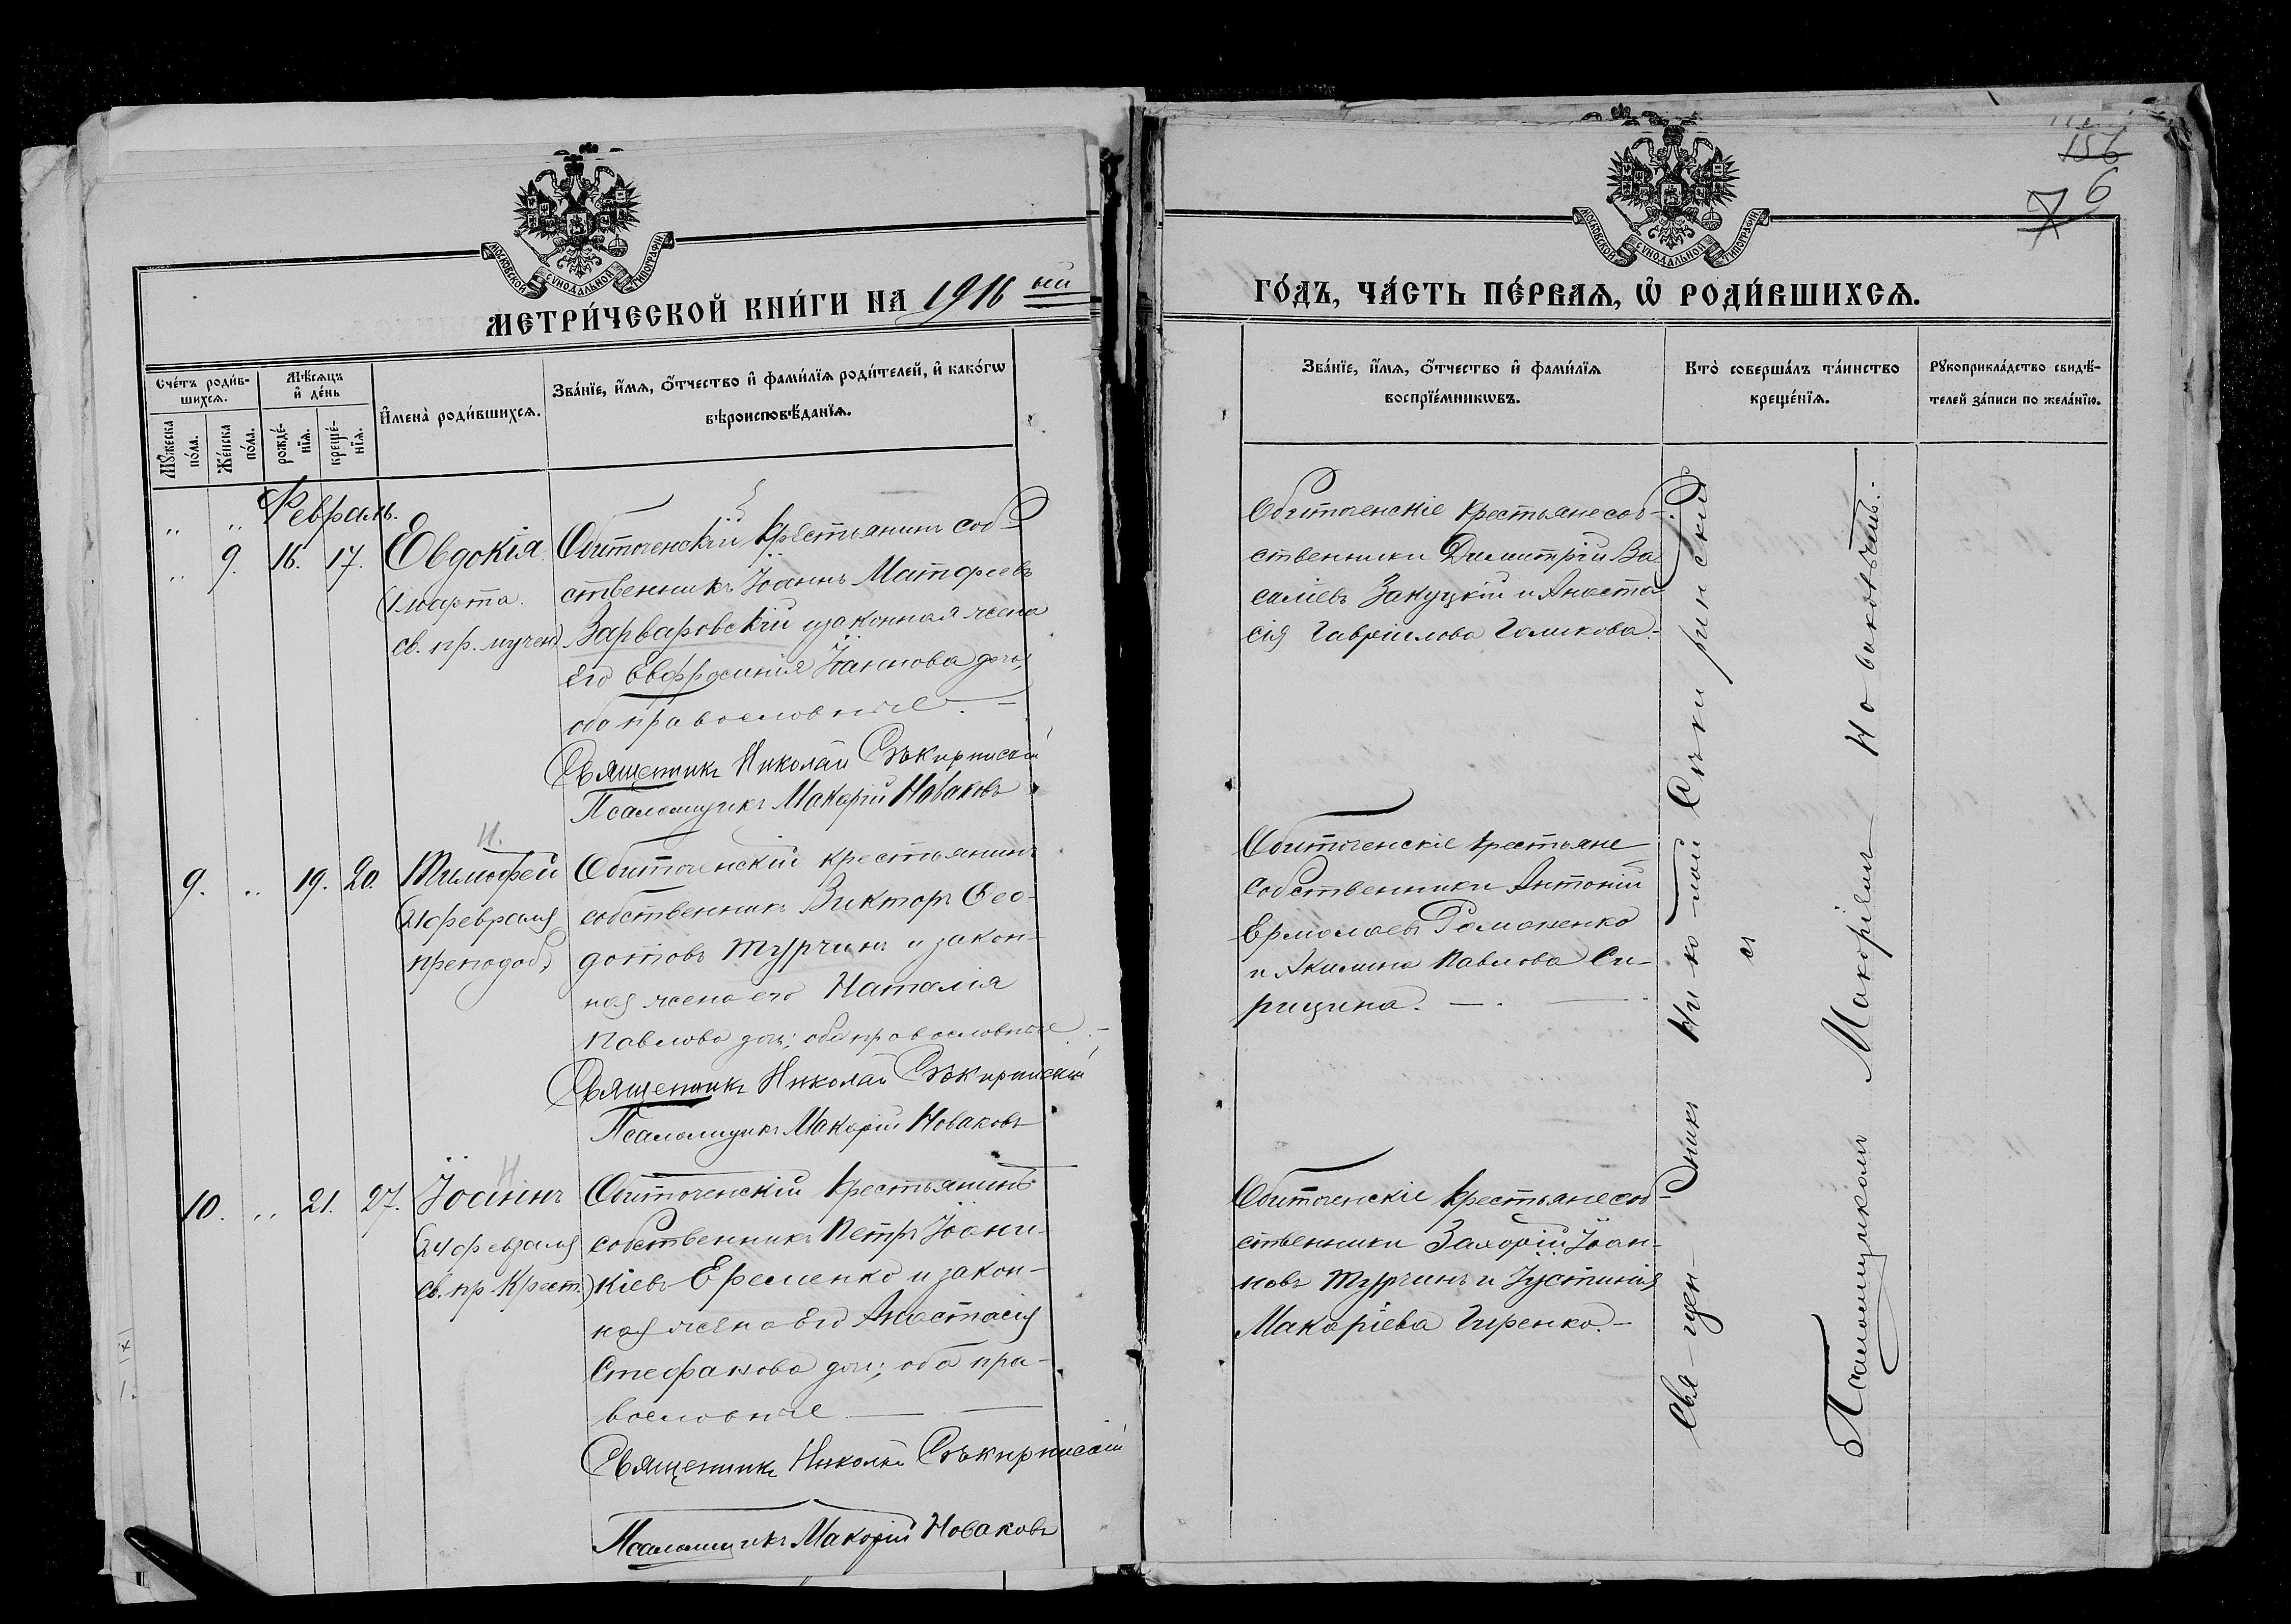 156
7 6
МОСКОВСКОЙ СѴНОДАЛЬНОЙ ТИПОГРАФІИ
МОСКОВСКОЙ СѴНОДАЛЬНОЙ ТИПОГРАФІИ
МЕТРИ́ЧЕСКОЙ КНИ́ГИ НА 1916 ый
ГО́ДЪ, ЧА́СТЬ ПЕ́РВАѦ, Ѡ҆ РОДИ́ВШИХСѦ.
Сче́тъ роди́в-
шихсѧ.
Мꙋ́жеска
по́ла.
Же́нска
по́ла.
Мѣ́сѧцъ
и҆ де́нь
рожде́-
нїѧ.
креще́-
нїѧ.
И҆мена̀ роди́вшихсѧ.
Зва́нїе, и҆́мѧ, ѻ҆́тчество и҆ фамилїѧ роди́телей, и҆ како́гѡ
вѣроисповѣ́данїѧ.
Зва́нїе, и҆́мѧ, ѻ҆́тчество и҆ фами́лїѧ
воспрїе́мникѡвъ.
Кто̀ соверша́лъ та́инство
креще́нїѧ.
Рꙋкоприкла́дство свидѣ́-
телей за́писи по жела́нїю.
„ „ Февраль.
„ 9. 16. 17. Евдокія
(1 марта
св. пр. мучен)
Обиточенскій крестьянинъ соб-
ственникъ Іоаннъ Матѳеевъ
Варваровскій и законная жена
его Евфросинія Іоаннова доч;
оба православные. —
Священникъ Николай Сѣкиринскій
Псаломщикъ Макарій Новаковъ
Обиточенскіе крестьяне соб-
ственники Димитрій Ва-
силіевъ Закуцкій и Анаста-
сія Гавріилова Голикова.-
9. „ 19. 20. Тимоѳей
(21 февраля
преподоб)
Обиточенскій крестьянинъ
собственникъ Викторъ Ѳео-
дотовъ Турчинъ и закон-
ная жена его Наталія
Павлова доч; оба православные. -
Священникъ Николай Сѣкиринскій
Псаломщикъ Макарій Новаковъ
Обиточенскіе крестьяне
собственники Антоній
Ермолаевъ Романенко
и Акилина Павлова Си-
рицина. — . —
10. „ 21. 27. Іоаннъ
(24 февраля
св. пр. Крест.)
Обиточенскій крестьянинъ
собственникъ Петръ Іоани-
кіевъ Еременко и закон-
ная жена его Анастасія
Стефанова доч; оба пра-
вославные — —
Священникъ Николай Сѣкиринскій
Псаломщикъ Макарій Новаковъ
Обиточенскіе крестьяне соб-
ственники Захарій Іоан-
новъ Турчинъ и Іустинія
Макаріева Гиренко. -
Свя-щен-никъ Николай Сѣкиринскій
и
Псаломщикомъ Макаріемъ Новаковымъ.-